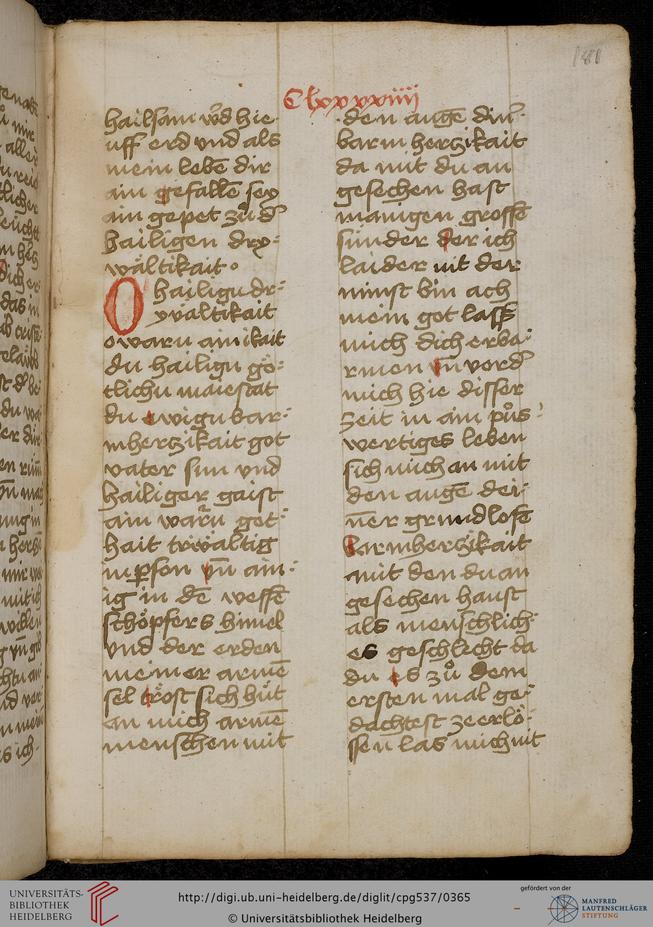 181
Clxxxxiiii
hailsam w͛d hie
uff erd vnd als
mein lebē dir
ain gefallē sey
ain gepet zů d͛
hailigen dry⸗
wåltikait
O hailigu dr⸗
yvaltikait
o waru ainikait
du hailigu gö⸗
tlichu maiestat
du ewigu bar⸗
mherczikait got
vater sun vnd
hailiger gaist
ain warū got⸗
hait trivältig
in ꝑson vn̄ ain⸗
ig in dē wessē
schöpfers himel
vnd der erden
meiner armē
sel tröst sich hüt
an mich armē
menschen mit
den augē din͛
barmherczikait
da mit du an
gesechen hast
manigen grossē
sünder der ich
laider nit der
minst bin ach
mein got lasß
mich dich erba⸗
rmen vn̄ vord͛
mich hie disser
zeit in ain půs⸗
wertiges leben
sich mich an mit
den augē dei⸗
n̄er grundlosē
barmherczikait
mit den du an
gesechen haust
als menschlich⸗
es geschlecht da
du es zů dem
ersten mal ge⸗
dachtest ze erlö⸗
ssen las mich nit
UNIVERSITÄTS-
BIBLIOTHEK
HEIDELBERG
http://digi.ub.uni-heidelberg.de/diglit/cpg537/0365
© Universitätsbibliothek Heidelberg
gefördert von der
MANFRED
LAUTENSCHLÄGER
STIFTUNG